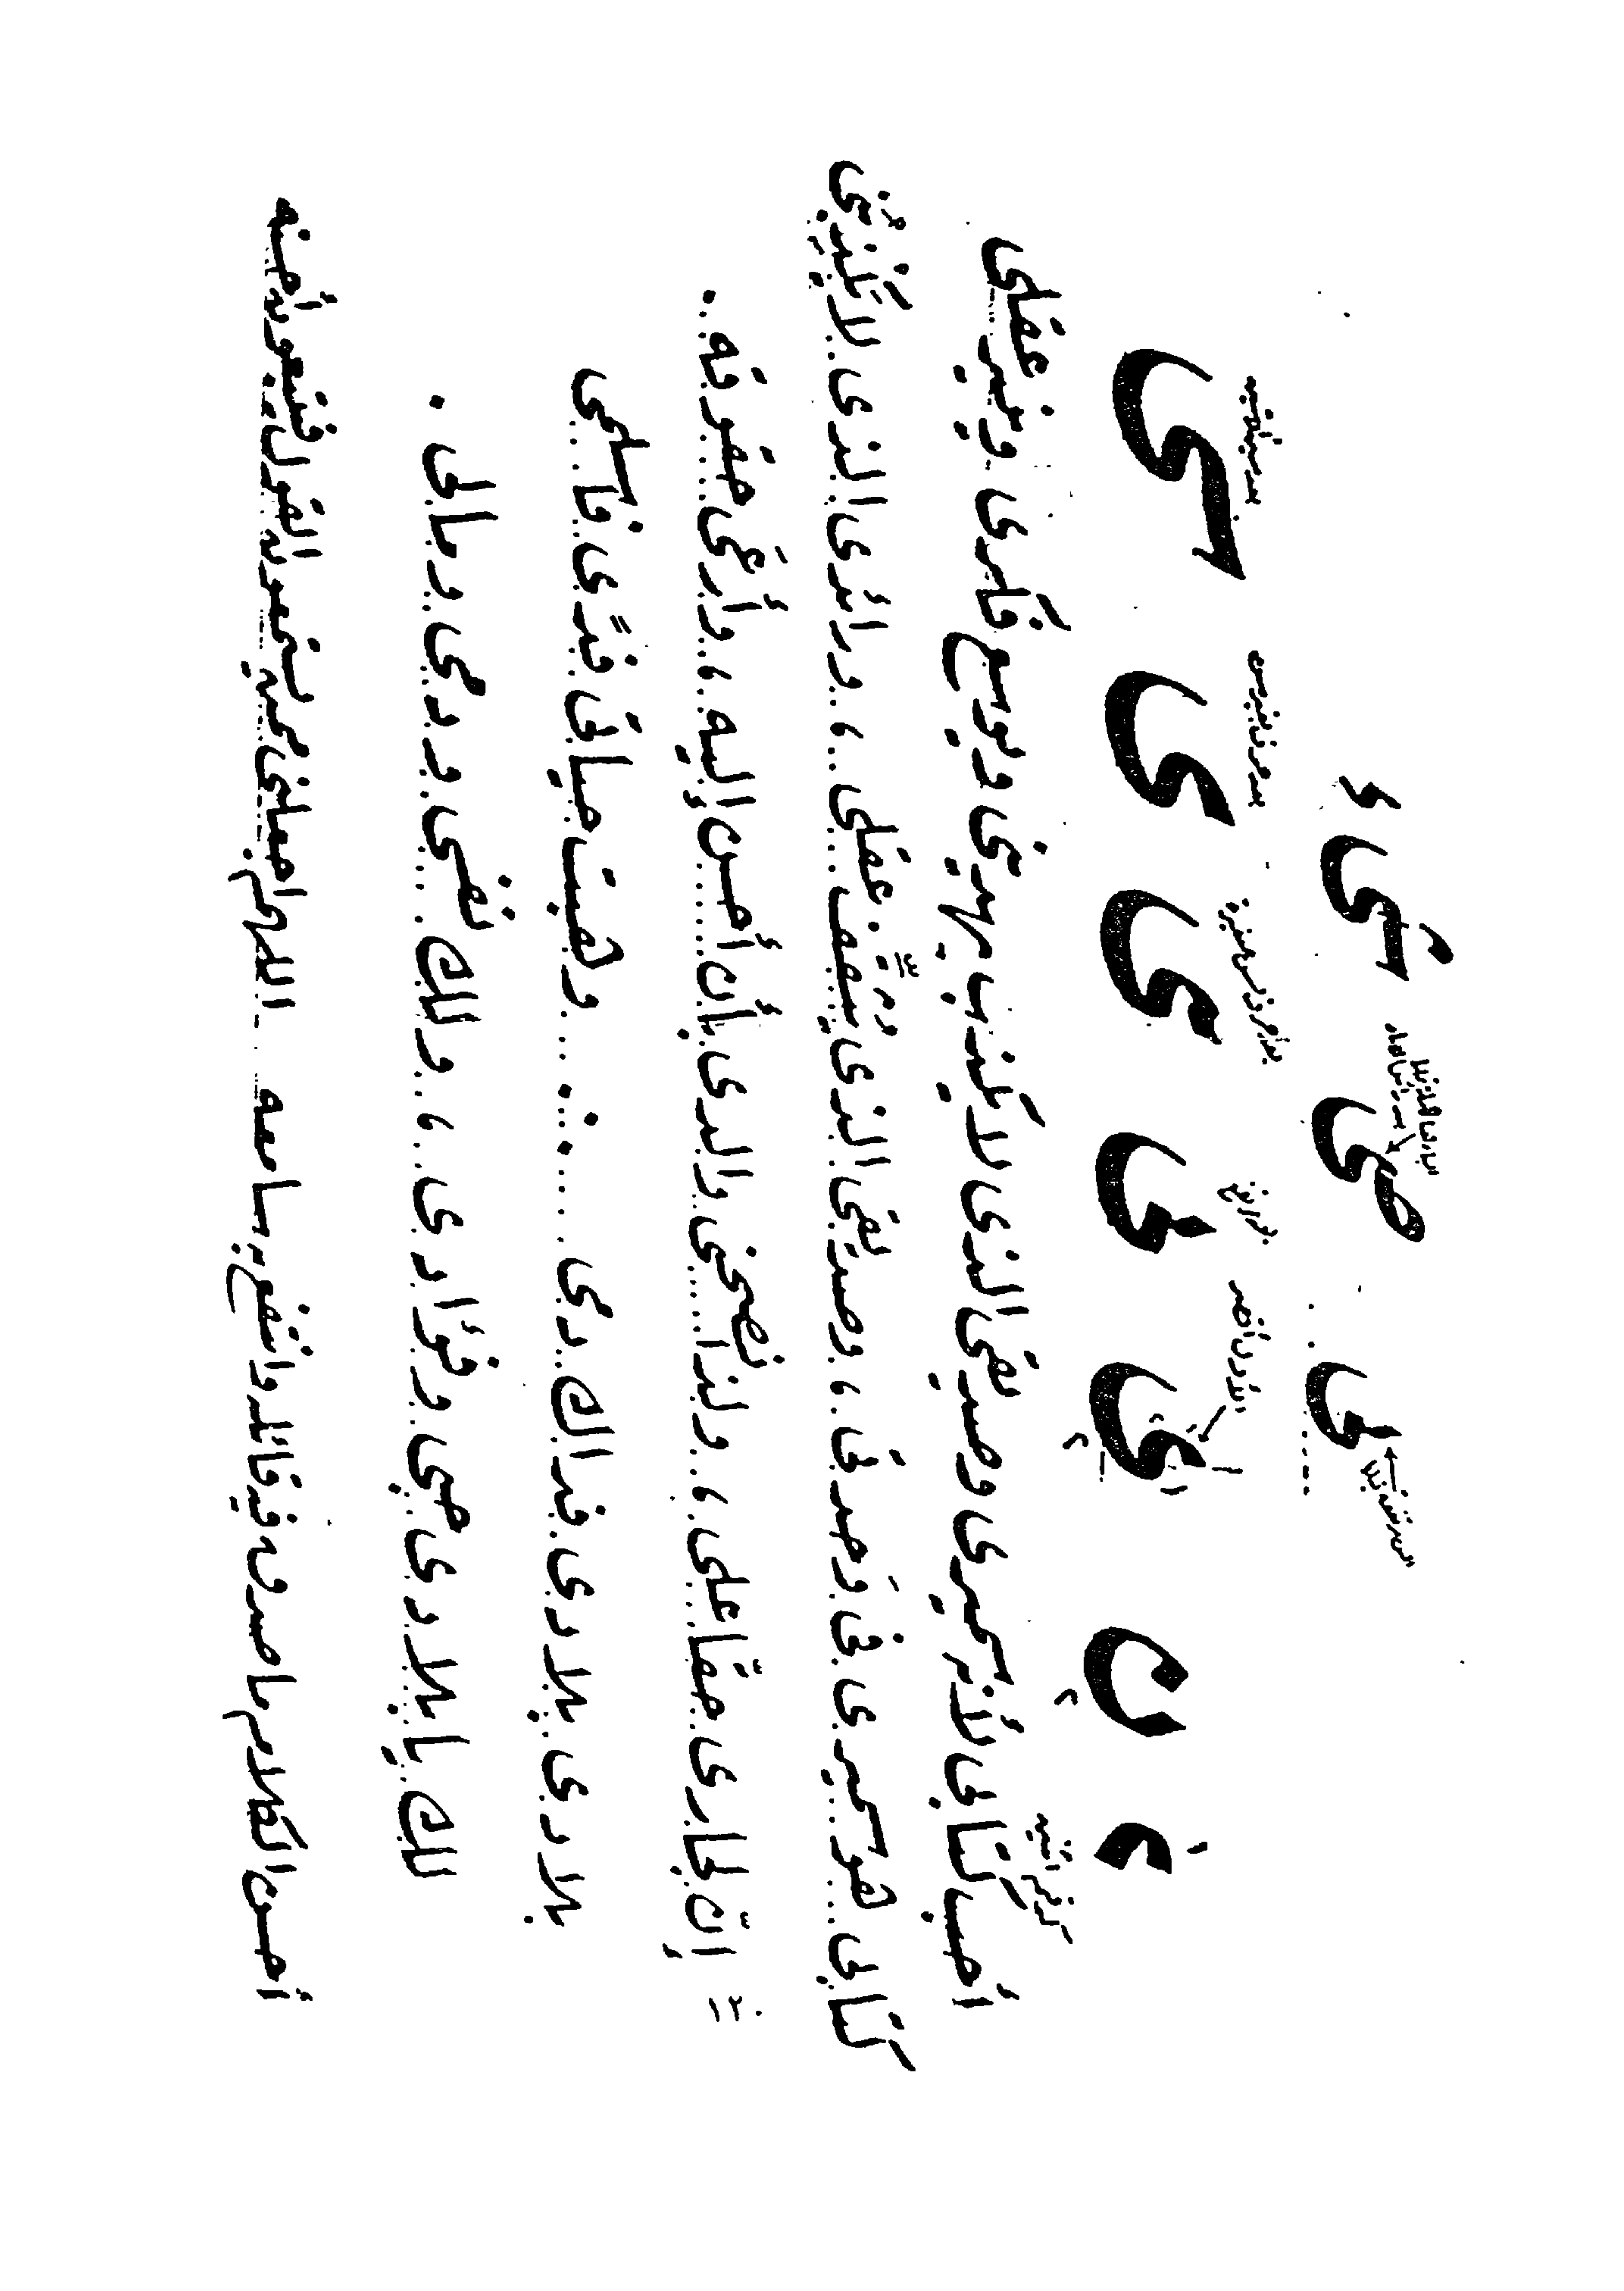 فى صى سى ء
ع ن ى فى ى ى سى
أحب كتابى لأنه سميرى وصديقى الذى لا يكذب يهدينى ويوسع فكرى وينير عقلى
كتابى هو سميرى فى وحدتى ، وصديقى الذى يثقف عقلى ، ورائدى الذى لا يكذبنى
إنّ لجارى حقًا على ، ولذا نصحنى والدى بأن أحسن إليه ، وأرعى حقوقه .
بلادى بلادى فداك دمى .. وهبت حياتى فدًى فاسلمى
لك يا بلادى حبى وفؤادى ، ولك نفسى ودمى ومالى .
أحسن الكلام ما صدق فيه قائله وانتفع به سامعه .. اللهم اجعلنى ممن يستمعون القول فيتبعون أحسنه